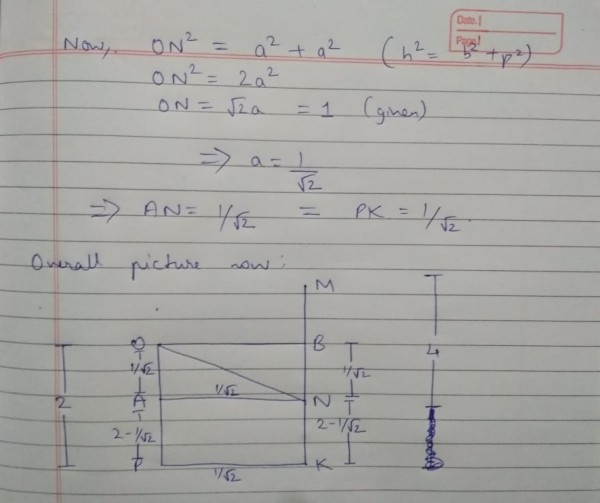 Date.
Page
Now, ON² = a² + a² (h² = b² + p²)
ON² = 2a²
ON = √2a = 1 (given)
⇒ a = 1/√2
⇒ AN = 1/√2 = PK = 1/√2.
Overall picture now:
M
O B
1/√2 1/√2 4
2 A 1/√2 N
2-1/√2 2-1/√2
P 1/√2 K